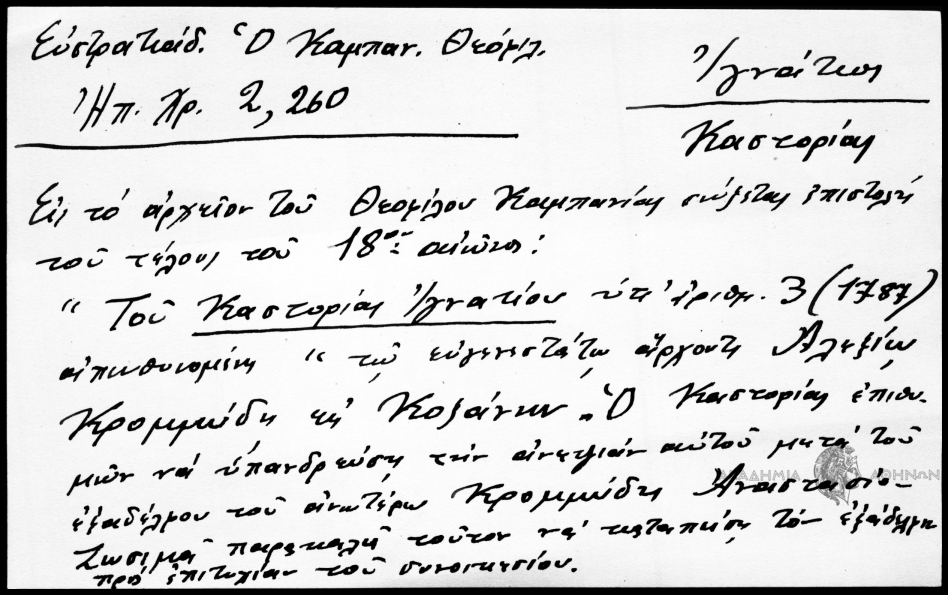 Εὐστρατιάδ. Ὁ Καμπαν. Θεόφιλ.
Ἠπ. Χρ. 2, 260
Ἰγνάτιος
Καστορίας
Εἰς τό ἀρχεῖον τοῦ Θεοφίλου Καμπανίας σώζεται ἐπιστολή
τοῦ τέλους τοῦ 18ου αἰῶνος:
"Τοῦ Καστορίας Ἰγνατίου ὑπ' ἀριθμ. 3 (1787)
ἀπευθυνομένη "τῷ εὐγενεστάτῳ ἄρχοντι Ἀλεξίῳ
Κρομμύδῃ εἰς Κοζάνην. Ὁ Καστορίας ἐπιθυ-
μῶν νά ὑπανδρεύσῃ τήν ἀνεψιάν αὐτοῦ μετά τοῦ
ἐξαδέλφου τοῦ ἀνωτέρω Κρομμύδη Ἀναστασίο-
Ζωσιμᾶ παρεκάλει τοῦτον νά καταπείσῃ τόν ἐξάδελφον
πρό ἐπιτυχίαν τοῦ συνοικεσίου.
ΑΚΑΔΗΜΙΑ ΑΘΗΝΩΝ